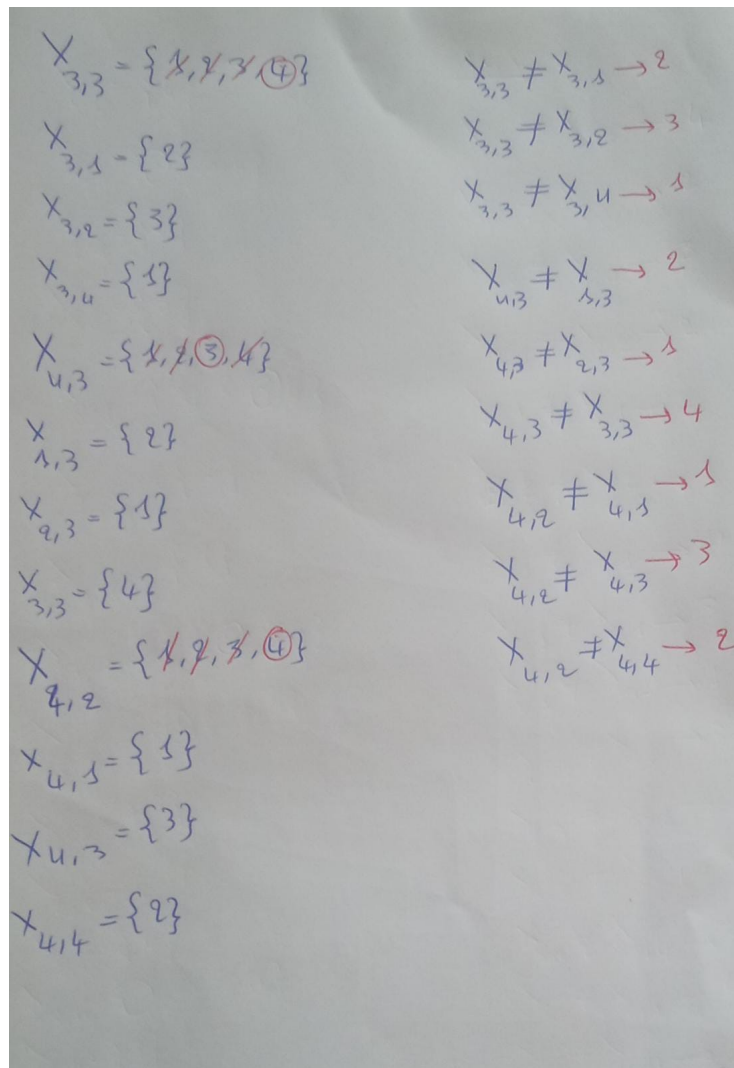 X3,3 = {1, 2, 3, 4}
X3,1 = {2}
X3,2 = {3}
X3,4 = {1}
X4,3 = {1, 2, 3, 4}
X1,3 = {2}
X2,3 = {1}
X3,3 = {4}
X4,2 = {1, 2, 3, 4}
X4,1 = {1}
X4,3 = {3}
X4,4 = {2}
X3,3 ≠ X3,1 → 2
X3,3 ≠ X3,2 → 3
X3,3 ≠ X3,4 → 1
X4,3 ≠ X1,3 → 2
X4,3 ≠ X2,3 → 1
X4,3 ≠ X3,3 → 4
X4,2 ≠ X4,1 → 1
X4,2 ≠ X4,3 → 3
X4,2 ≠ X4,4 → 2